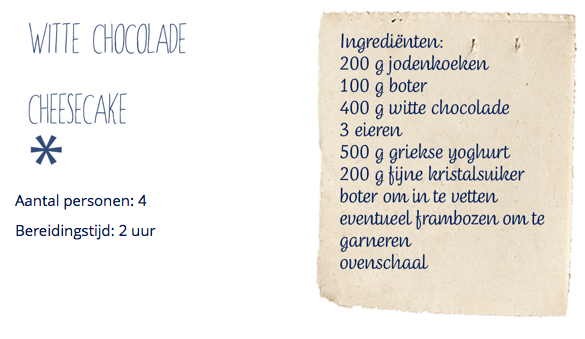 WITTE CHOCOLADE
CHEESECAKE
*
Aantal personen: 4
Bereidingstijd: 2 uur
Ingrediënten:
200 g jodenkoeken
100 g boter
400 g witte chocolade
3 eieren
500 g griekse yoghurt
200 g fijne kristalsuiker
boter om in te vetten
eventueel frambozen om te
garneren
ovenschaal